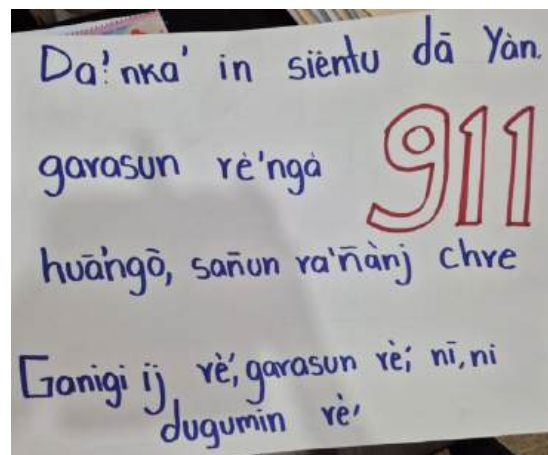 Da' nka' in siëntu dā Yàn.
garasun rè'ngà 911
huā'ngō, sañun ra'ñànj chre
Ganigi ïj rè', garasun rè', nī, ni
dugumin rè'